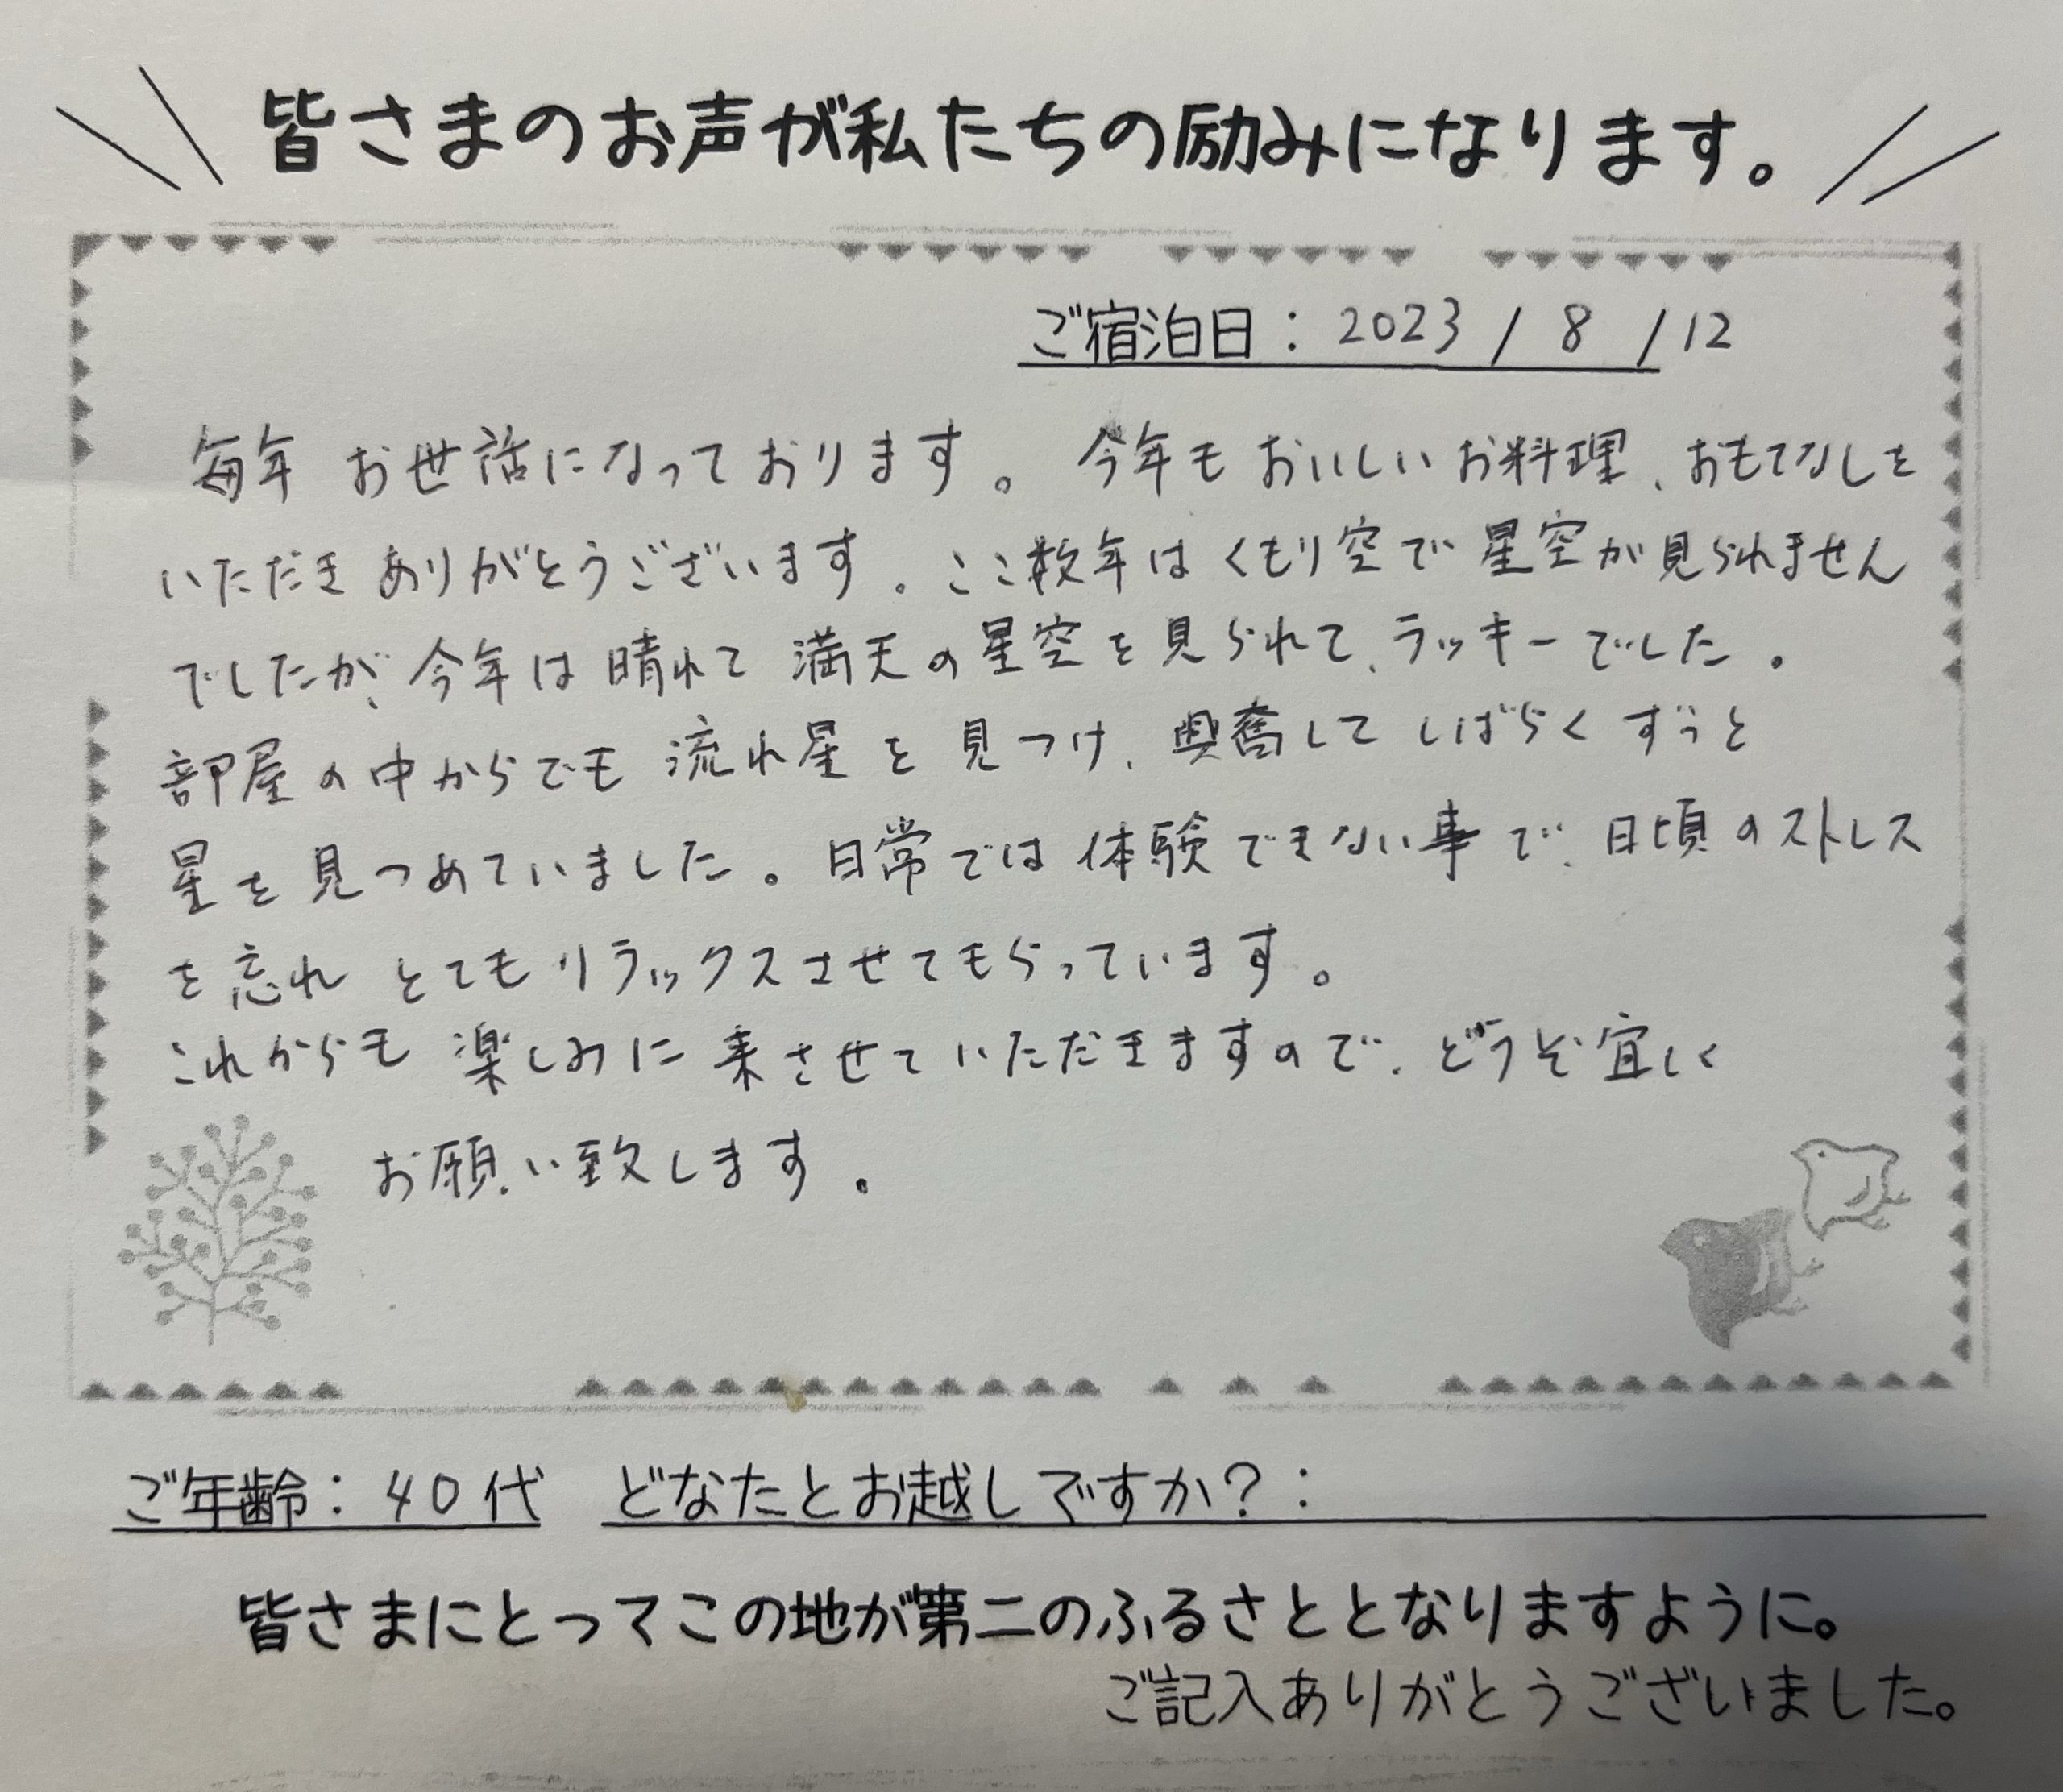 皆さまのお声が私たちの励みになります。
ご宿泊日：2023 / 8 / 12
毎年 お世話になっております。 今年も おいしい お料理、おもてなしを
いただき ありがとうございます。ここ数年は くもり空で 星空が見られません
でしたが、今年は 晴れて 満天の星空を見られて、ラッキーでした。
部屋の中からでも 流れ星を見つけ、興奮して しばらく ずうっと
星を見つめていました。日常では 体験できない事で、日頃のストレス
を忘れ とてもリラックスさせてもらっています。
これからも 楽しみに 来させていただきますので、どうぞ宜しく
お願い致します。
ご年齢：40代 どなたとお越しですか？：
皆さまにとってこの地が第二のふるさととなりますように。
ご記入ありがとうございました。